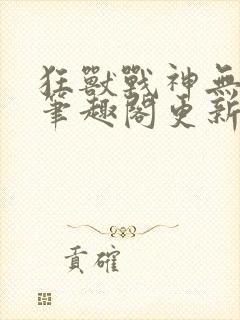 狂獸戰神無
筆趣閣更新
貢確